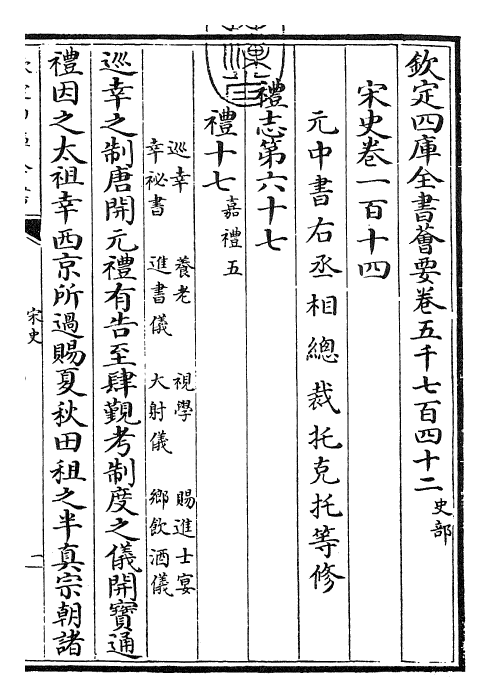 欽定四庫全書薈要卷五千七百四十二 史部
宋史卷一百十四
元中書右丞相總裁托克托等修
禮志第六十七
禮十七 嘉禮五
巡幸 養老 視學 賜進士宴
幸祕書 進書儀 大射儀 鄉飲酒儀
巡幸之制唐開元禮有告至肆覲考制度之儀開寶通
禮因之太祖幸西京所過賜夏秋田租之半真宗朝諸
宋史